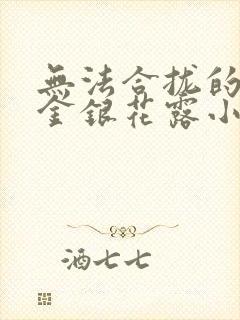 無法合拢的
金銀花露小
酒七七